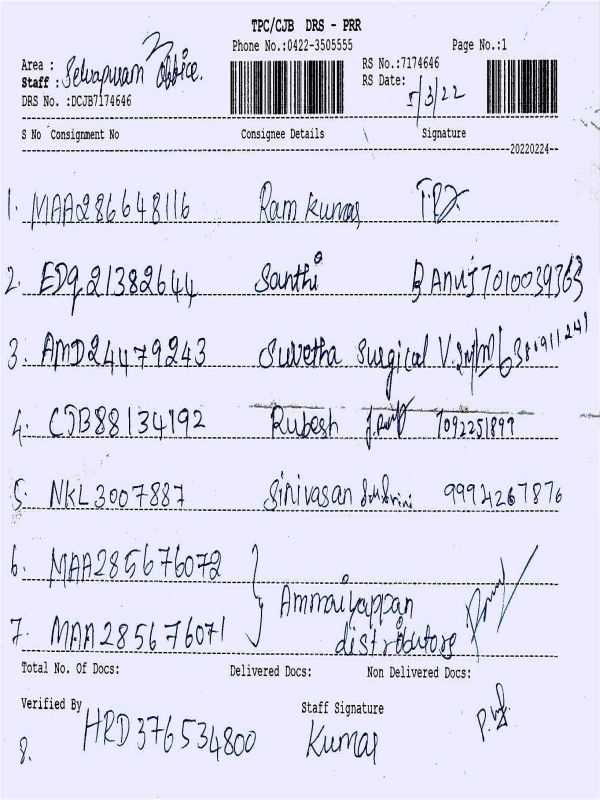 TPC/CJB DRS - PRR
Phone No.:0422-3505555 Page No.:1
Area :
Staff : Selvapuram Office.
RS No.:7174646
RS Date: 5/3/22
DRS No. :DCJB7174646
S No Consignment No Consignee Details Signature
20220224
1. MAA286648116 Ram Kumar
2. EDQ21382644 Santhi B Anuj 7010039363
3. AMD24479243 Suvetha Surgical
4. CJB88134192 Rubesh 7092251899
5. NKL3007887 Sinivasan 9994267876
6. MAA285676072
Ammaiyappan
7. MAA285676071 distributors
Total No. Of Docs: Delivered Docs: Non Delivered Docs:
Verified By Staff Signature
8. HRD376534800 Kumar